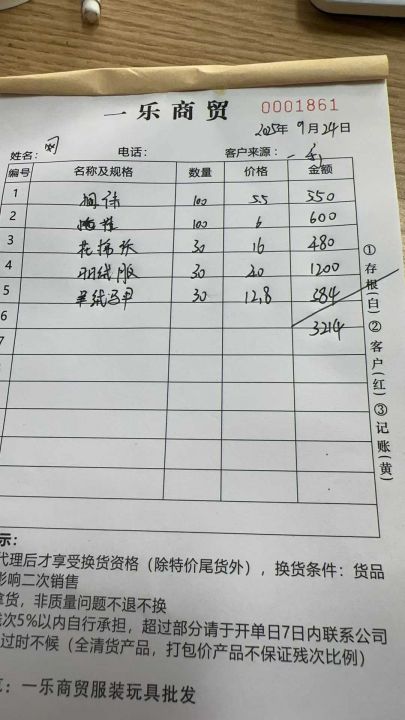 一乐商贸 0001861
2025年 9月24日
姓名: 电话: 客户来源:
编号 名称及规格 数量 价格 金额
1 100 5.5 550
2 100 6 600
3 花棉袄 30 16 480
4 羽绒服 30 40 1200
5 羊绒马甲 30 12.8 384
6 3214
7
①存根(白)②客户(红)③记账(黄)
示:
代理后才享受换货资格(除特价尾货外),换货条件:货品
影响二次销售
拿货,非质量问题不退不换
残次5%以内自行承担,超过部分请于开单日7日内联系公司
过时不候(全清货产品,打包价产品不保证残次比例)
一乐商贸服装玩具批发